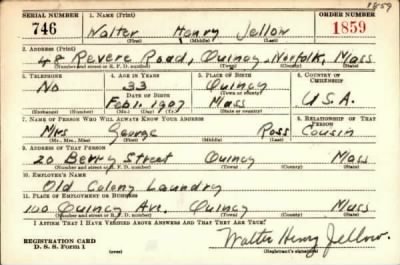 1859
SERIAL NUMBER 1. NAME (Print) ORDER NUMBER
746 Walter Henry Jellow 1859
(First) (Middle) (Last)
2. ADDRESS (Print)
48 Revere Road, Quincy, Norfolk, Mass
(Number and street or R. F. D. number) (Town) (County) (State)
3. TELEPHONE 4. AGE IN YEARS 5. PLACE OF BIRTH 6. COUNTRY OF CITIZENSHIP
No 33 Quincy
DATE OF BIRTH (Town or county)
Feb 1. 1907 Mass U.S.A.
(Exchange) (Number) (Mo.) (Day) (Yr.) (State or country)
7. NAME OF PERSON WHO WILL ALWAYS KNOW YOUR ADDRESS 8. RELATIONSHIP OF THAT PERSON
Mrs George Ross Cousin
(Mr., Mrs., Miss) (First) (Middle) (Last)
9. ADDRESS OF THAT PERSON
20 Berry Street Quincy Mass
(Number and street or R. F. D. number) (Town) (County) (State)
10. EMPLOYER'S NAME
Old Colony Laundry
11. PLACE OF EMPLOYMENT OR BUSINESS
100 Quincy Ave. Quincy Mass
(Number and street or R. F. D. number) (Town) (County) (State)
I AFFIRM THAT I HAVE VERIFIED ABOVE ANSWERS AND THAT THEY ARE TRUE.
REGISTRATION CARD
D. S. S. Form 1 (over) Walter Henry Jellow.
(Registrant's signature)